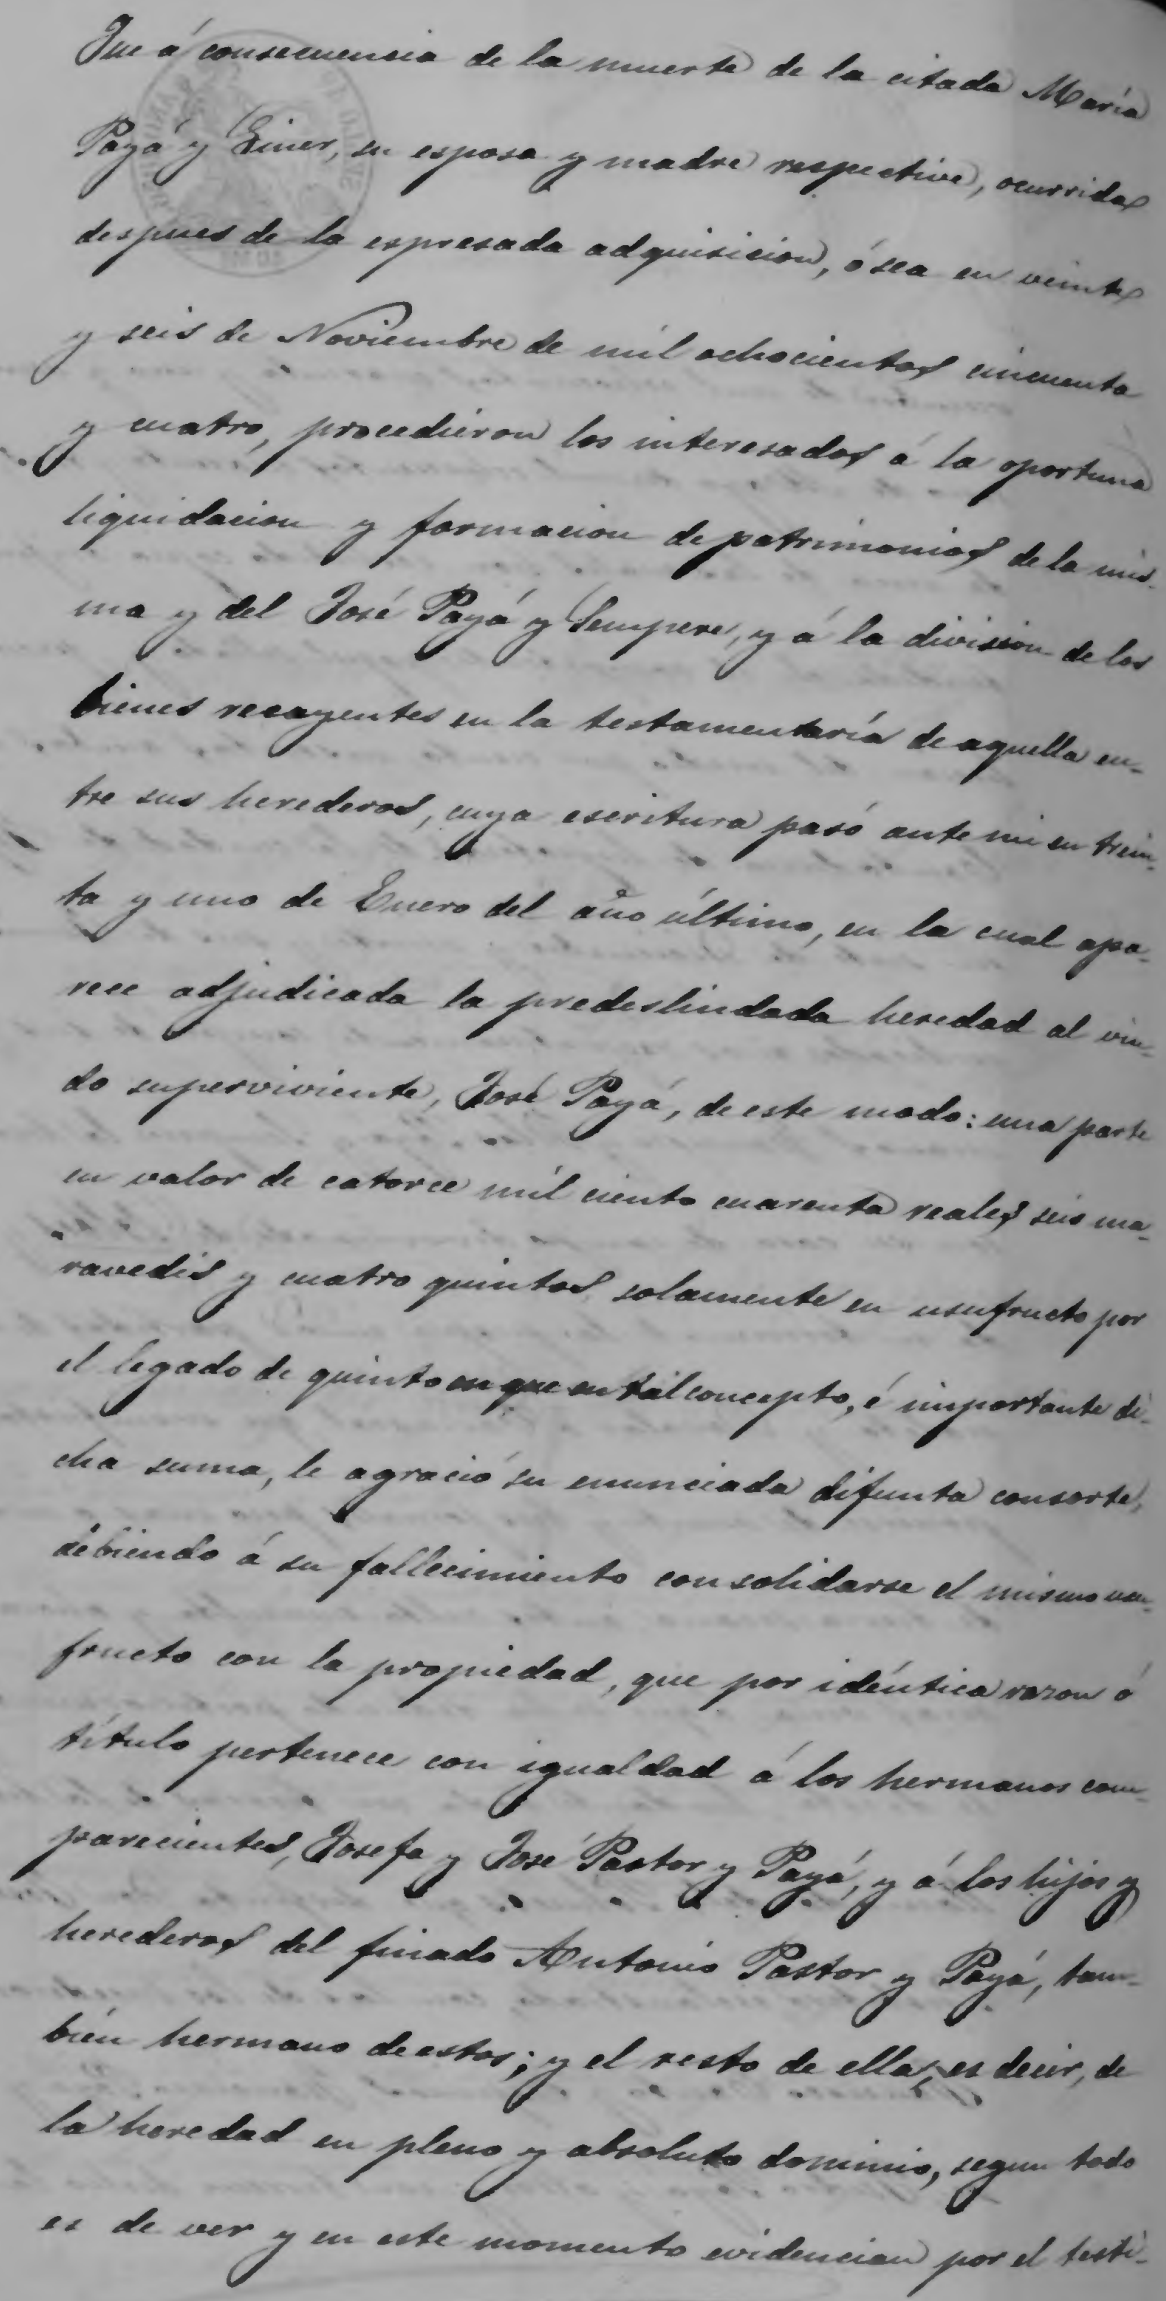 Que á consecuencia de la muerte de la citada María
Payá y Giner, su esposa y madre respective, ocurrida
despues de la espresada adquisicion, ó sea en veinte
y seis de Noviembre de mil ochocientos cincuenta
y cuatro, procedieron los interesados á la oportuna
liquidacion y formacion de patrimonios de la mis-
ma y del José Payá y Sempere, y á la division de los
bienes recayentes en la testamentaría de aquella en-
tre sus herederos, cuya escritura pasó ante mi en trein-
ta y uno de Enero del año último, en la cual apa-
rece adjudicada la predeslindada heredad al viu-
do superviviente, José Payá, de este modo: una parte
en valor de catorce mil ciento cuarenta reales seis ma-
ravedis y cuatro quintos solamente en usufructo por
el legado de quinto en que en tal concepto, é importante di-
cha suma, le agració su enunciada difunta consorte,
debiendo á su fallecimiento consolidarse el mismo usu-
fructo con la propiedad, que por idéntica razon ó
título pertenece con igualdad á los hermanos com-
parecientes, Josefa y José Pastor y Payá, y á los hijos y
herederos del finado Antonio Pastor y Payá, tam-
bién hermano de estos; y el resto de ella, es decir, de
la heredad en pleno y absoluto dominio, segun todo
es de ver y en este momento evidencian por el testi-